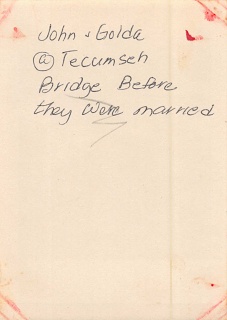 John & Golda
@ Tecumseh
Bridge Before
they were married